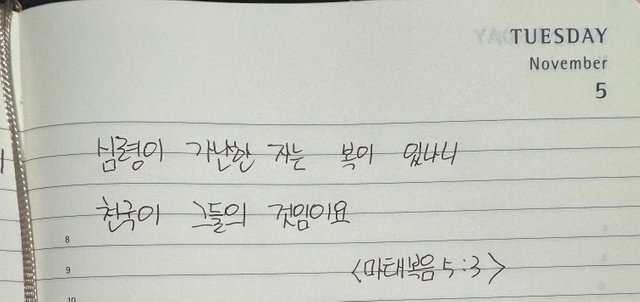 TUESDAY
November
5
심령이 가난한 자는 복이 있나니
천국이 그들의 것임이요
8
9
<마태복음 5:3>
10